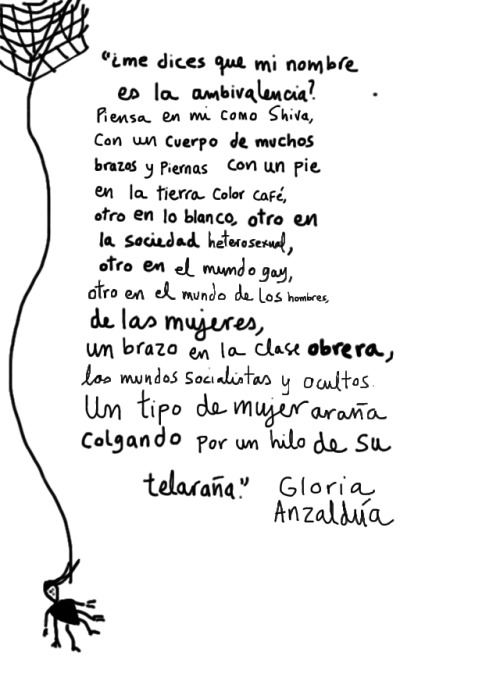 "¿me dices que mi nombre
es la ambivalencia?.
Piensa en mi como Shiva,
Con un cuerpo de muchos
brazos y Piernas con un pie
en la tierra Color CaFé,
otro en lo blanco, otro en
la sociedad heterosexual,
otro en el mundo gay,
otro en el mundo de Los hombres,
de las mujeres,
un brazo en la clase obrera,
los mundos socialistas y ocultos.
Un tipo de mujer araña
Colgando por un hilo de su
telaraña." Gloria
Anzaldúa